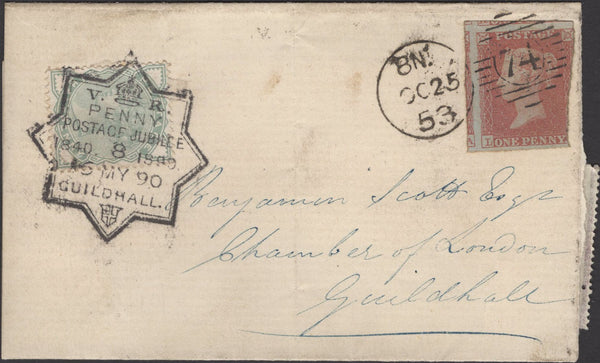 V. R.
PENNY
POSTAGE JUBILEE
1840 8 1890
16 MY 90
GUILDHALL.
BN
OC 25
53
74
POSTAGE
A L
ONE PENNY
Benjamin Scott Esqr
Chamber of London
Guildhall